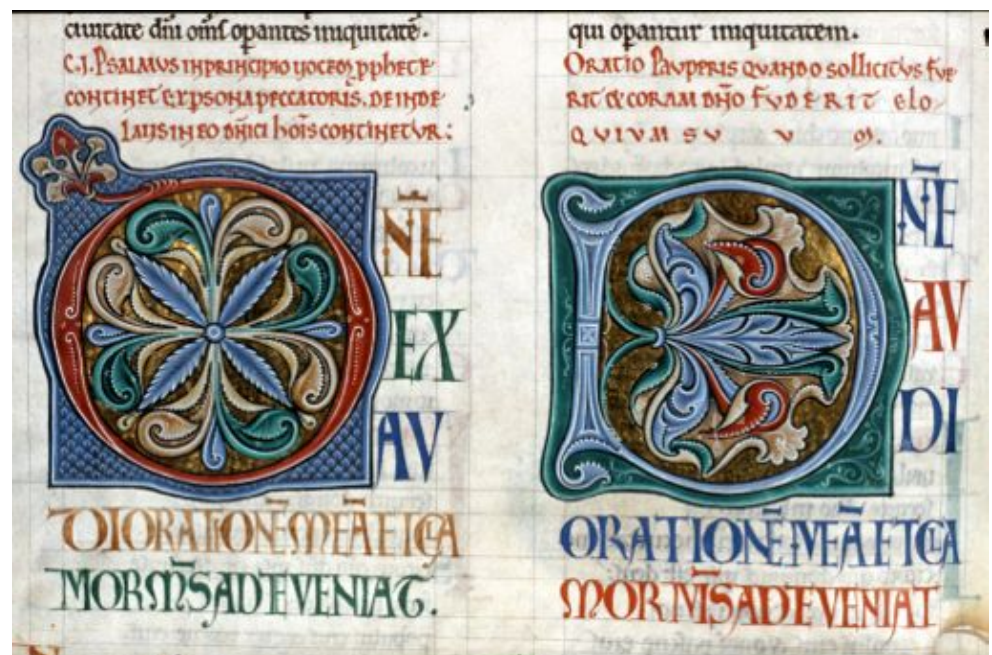 ciuitate dñi om̄s opantes iniquitatē.
C.J. PSALMUS IN PRINCIPIO UOCEO; PPHETE
CONTINET EX PSONA PECCATORIS. DEINDE
LAUS IN EO DÑICI HOĪS CONTINETUR:
D ÑE
EX
AV
DI ORATIONĒ MEĀ ET CLA
MOR M̄S AD TE VENIAT.
qui opantur iniquitatem.
ORATIO PAUPERIS QUANDO SOLLICITVS FUE
RIT & CORAM DÑO FUDERIT ELO
QVIVM SV V M.
D ÑE
AV
DI
ORATIONĒ MEĀ ET CLA
MOR M̄S AD TE VENIAT